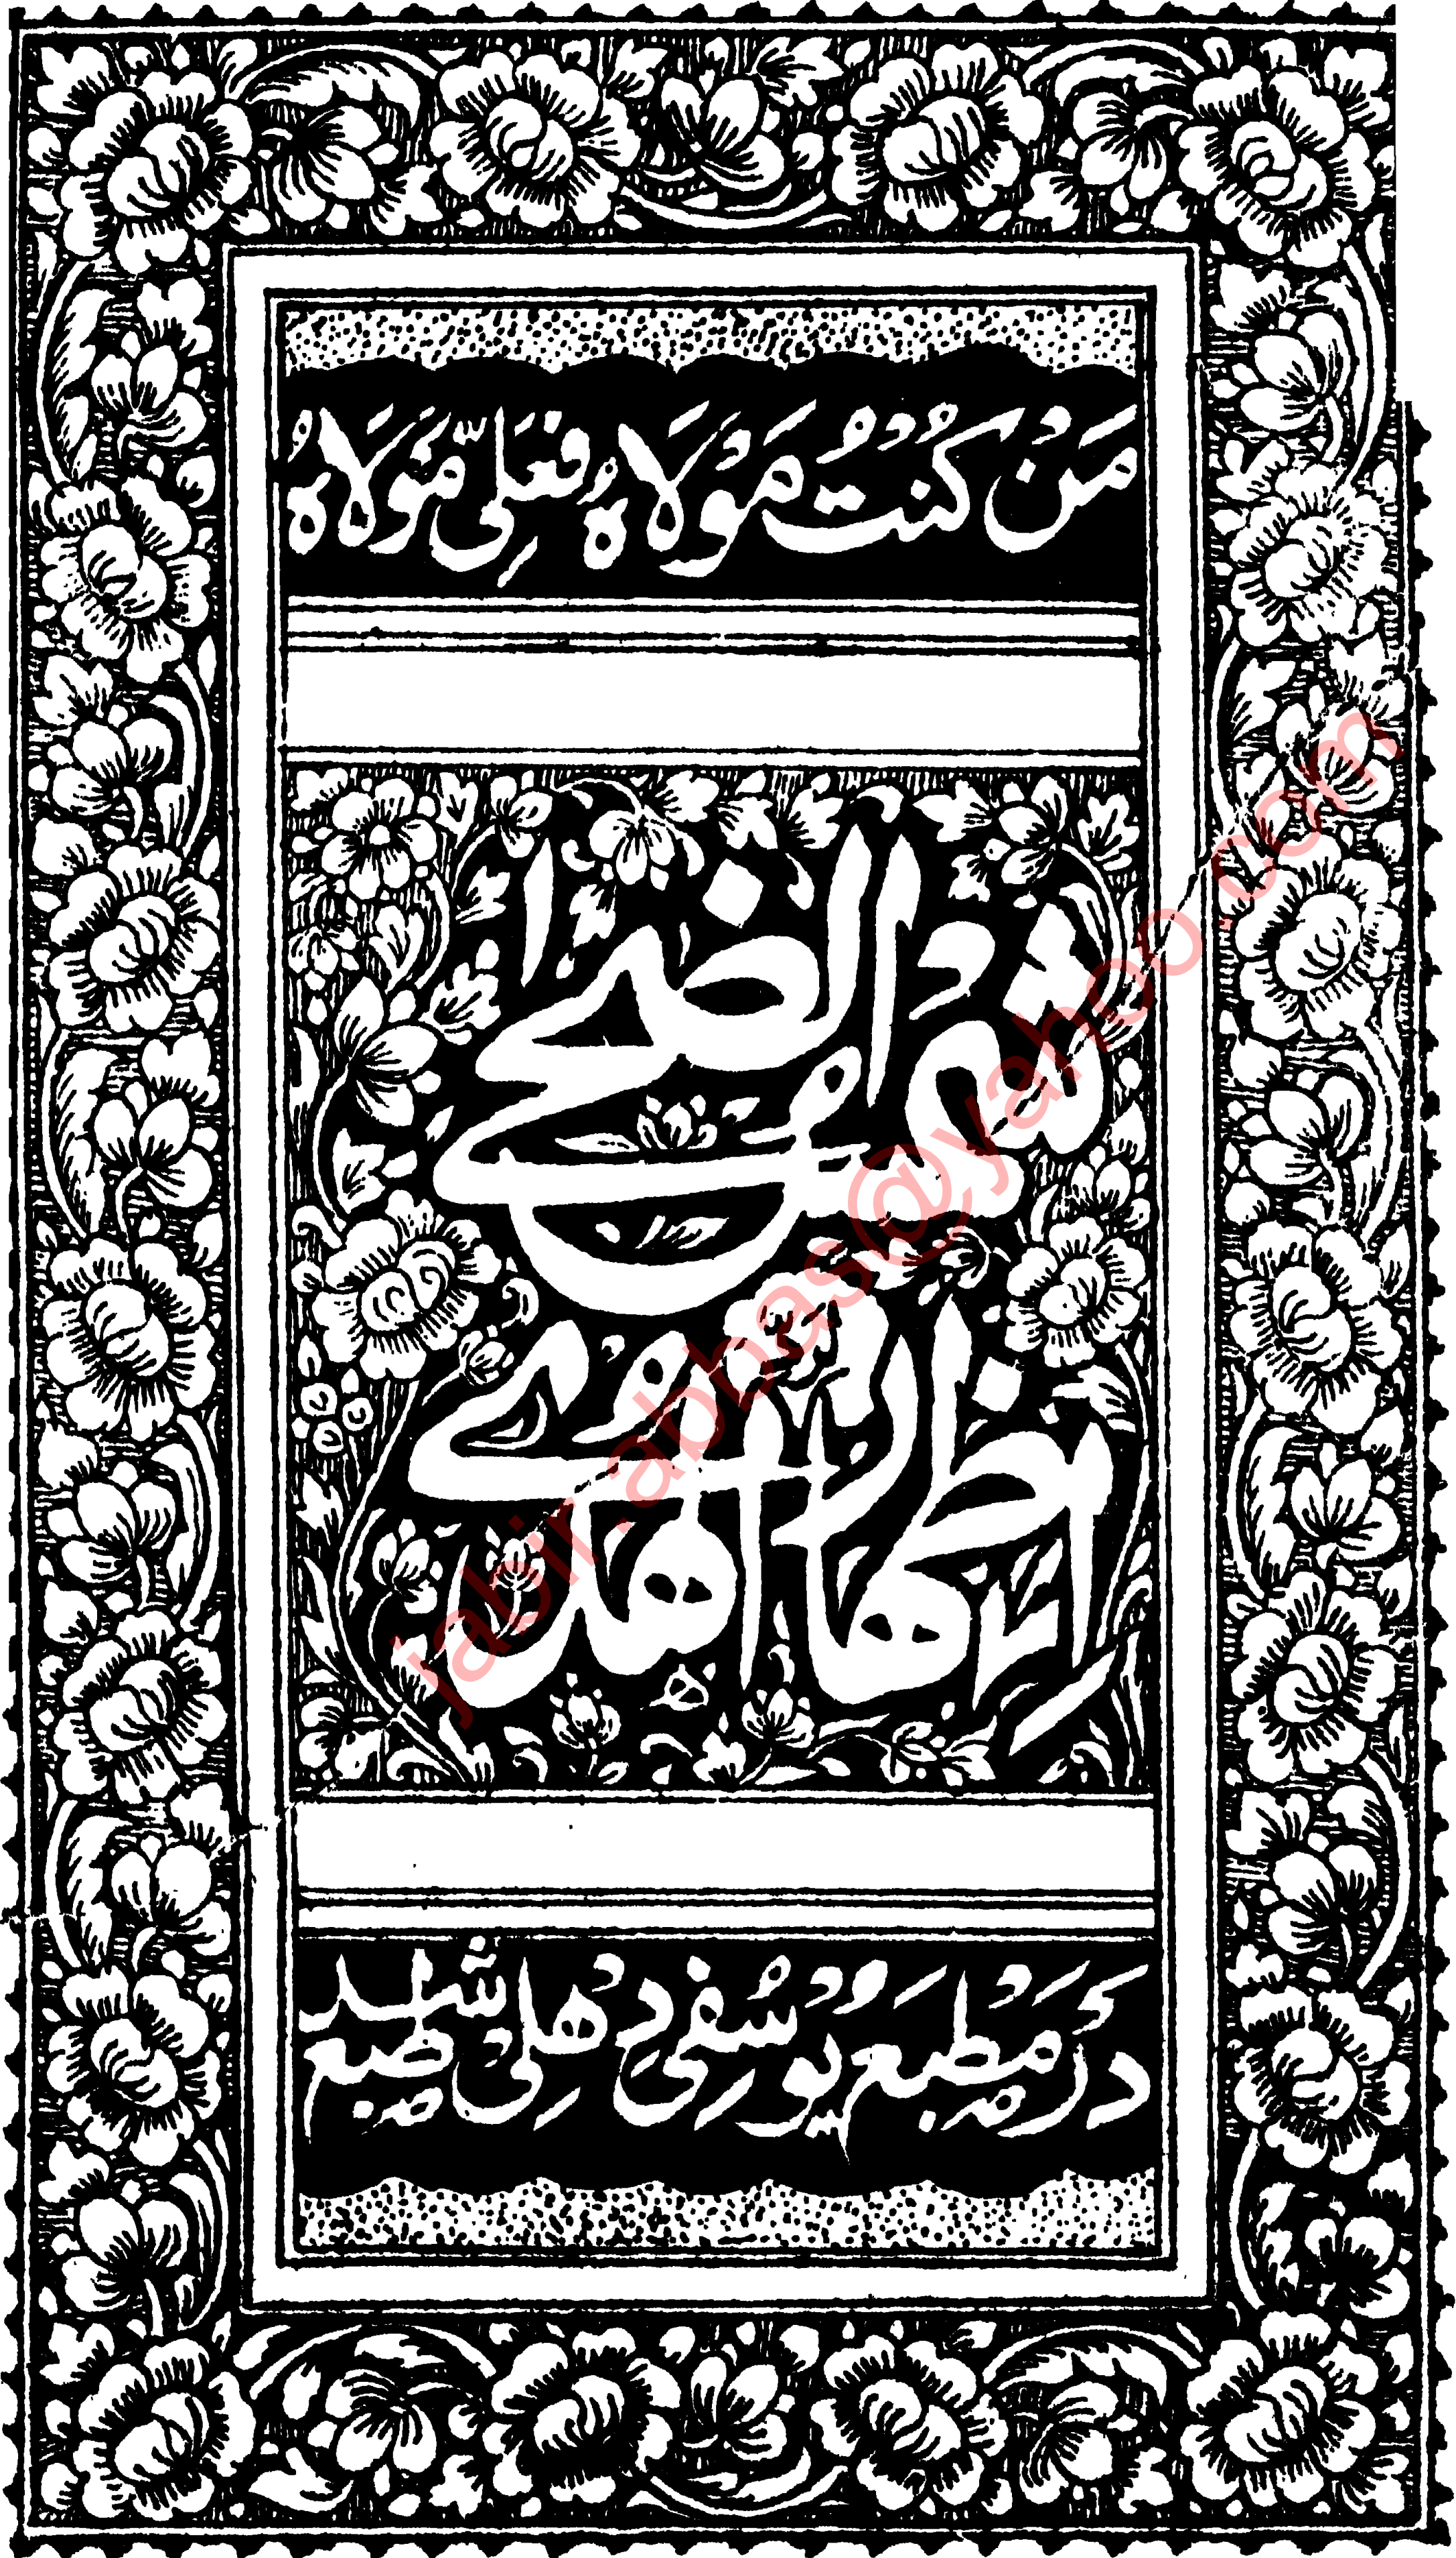 مَنْ كُنْتُ مَوْلَاهُ فَعَلِيٌّ مَوْلَاهُ
شمس الضحے
اظهار الهدے
در مطبع یوسفی دهلی طبع شد
jabir.abbas@yahoo.com